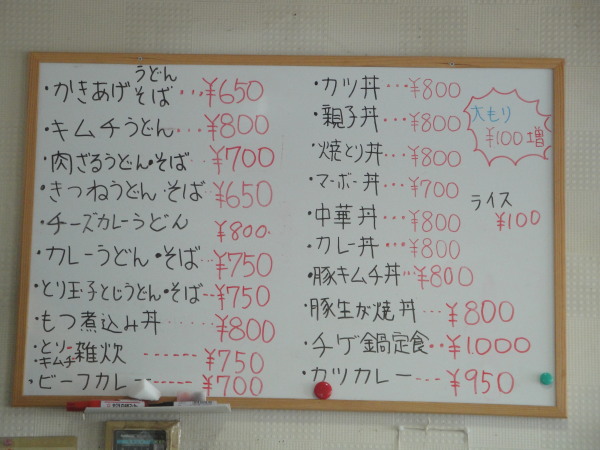 ・かきあげうどんそば…¥650
・キムチうどん…¥800
・肉ざるうどん・そば…¥700
・きつねうどん・そば…¥650
・チーズカレーうどん……¥800.
・カレーうどん・そば…¥750
・とり玉子とじうどん・そば…¥750
・もつ煮込み丼……¥800
・とり・キムチ雑炊------¥750
・ビーフカレー------¥700
・カツ丼…¥800
・親子丼…¥800
・焼とり丼…¥800
・マーボー丼…¥700
・中華丼…¥800
・カレー丼…¥800
・豚キムチ丼…¥800
・豚生が焼丼…¥800
・チゲ鍋定食…¥1.000
・カツカレー…¥950
大もり
¥100増
ライス
¥100